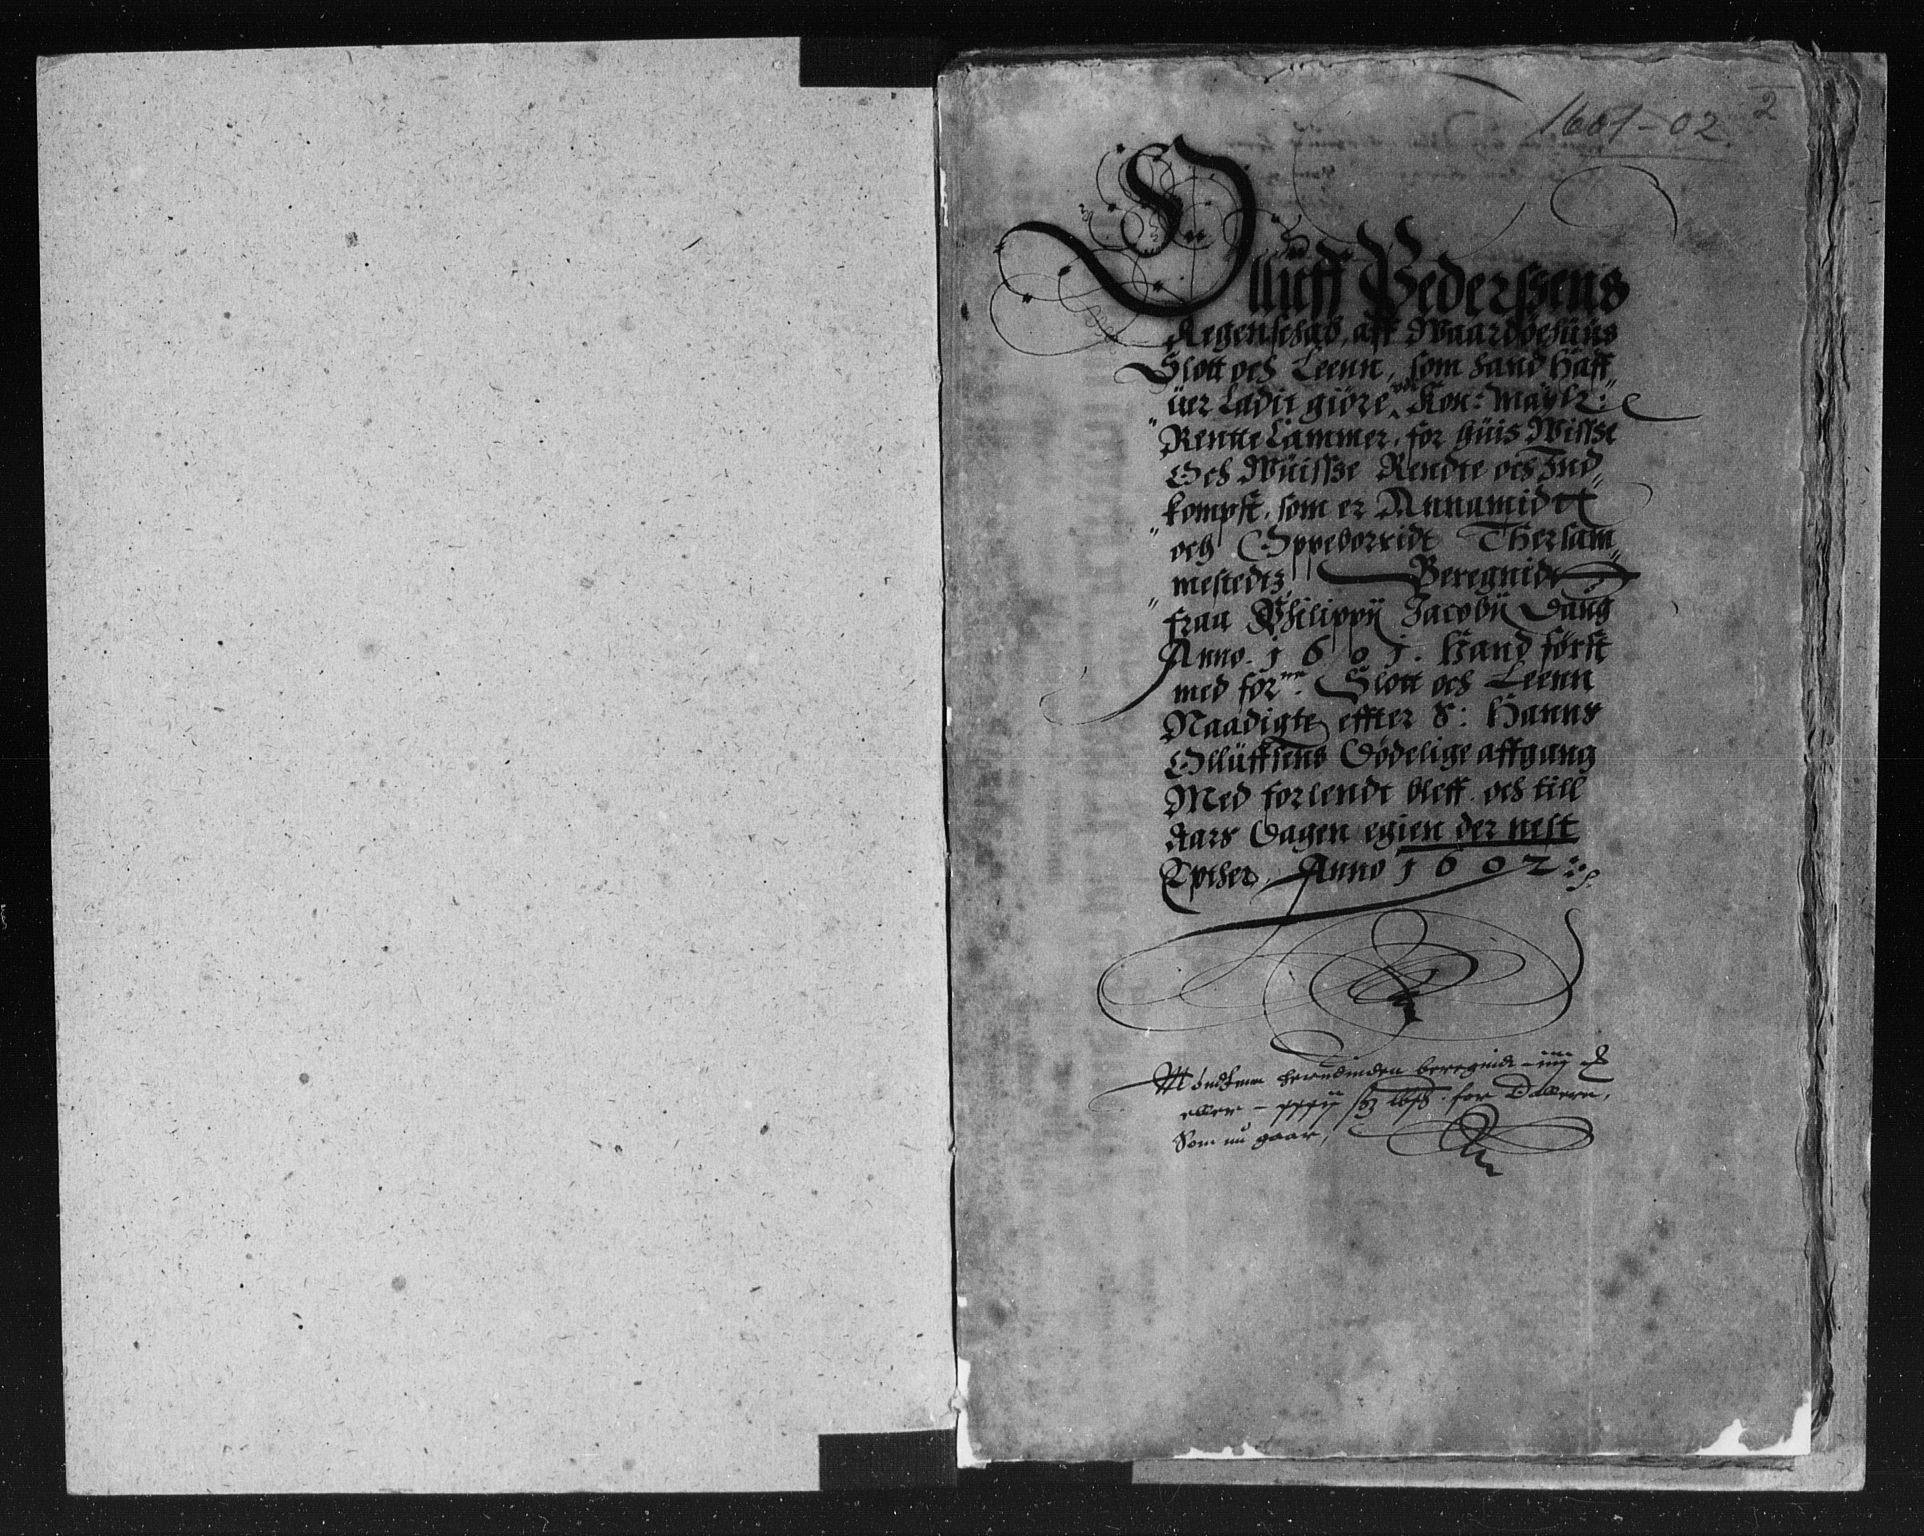 1601-02
2
Olluff Pederssens
Regenschab, aff Waardøehuus
Slott och Leenn, som hand haff
uer ladit giøre vdj Kon: Maytz:
Rentte Cammer, for huis Wisse
Och Wuisse Rendte och Ind
kompst, som er Annamidtt
och Oppeborridt Thersam
mestedtz, Beregnidt
fraa Philippij Jacobij Daug
Anno 1601. Hand først
med for:ne Slott och Leenn
Naadigte effter S: Hanns
Olluffsens Dødelige affgang
Med forlendt bleff. och till
Aars Dagen egien der nest
Epther, Anno 1602
Møndten herudinden beregnidt - iiij
eller - xxxij sz lybsk for Dalleren,
Som nu gaar,